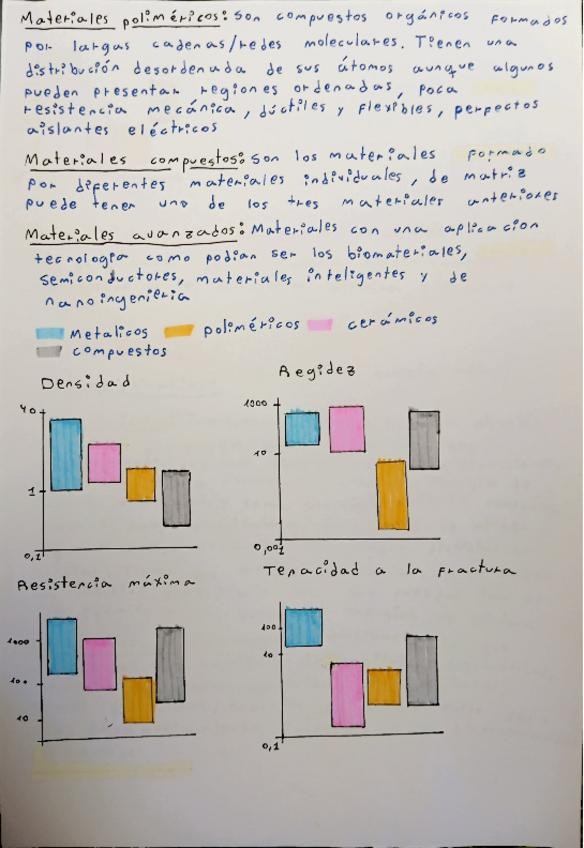 Materiales poliméricos: Son compuestos orgánicos formados
por largas cadenas/redes moleculares. Tienen una
distribución desordenada de sus átomos aunque algunos
pueden presentar regiones ordenadas, poca
resistencia mecánica, dúctiles y flexibles, perfectos
aislantes eléctricos
Materiales compuestos: Son los materiales formado
por diferentes materiales individuales, de matriz
puede tener uno de los tres materiales anteriores
Materiales avanzados: Materiales con una aplicacion
tecnologia como podian ser los biomateriales,
semiconductores, materiales inteligentes y de
nanoingenieria
Metalicos poliméricos cerámicos
compuestos
Densidad
40
1
0,1
Regidez
1000
10
0,001
Resistencia máxima
1000
100
10
Tenacidad a la fractura
100
10
0,1